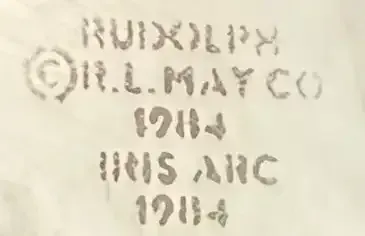 RUDOLPH
©R.L. MAY CO
1984
IRIS ARC
1984